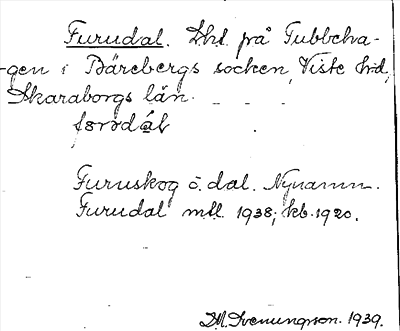 Furudal. Lht på Tubbeha-
-gen i Bärebergs socken, Viste hd,
Skaraborgs län.
Furuskog o. dal. Nynamn.
Furudal mtl. 1938; kb. 1920.
D.M. Svenungson. 1939.